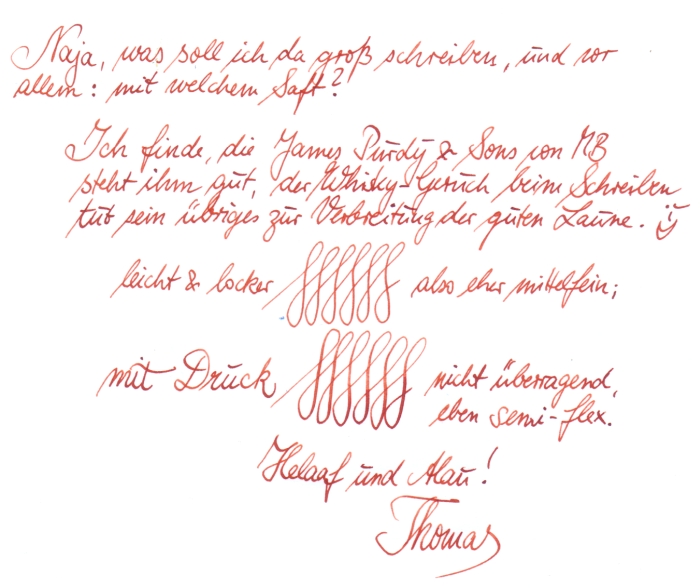 Naja, was soll ich da groß schreiben, und vor
allem: mit welchem Saft?
Ich finde, die James Purdy & Sons von MB
steht ihm gut, der Whisky-Geruch beim Schreiben
tut sein übriges zur Verbreitung der guten Laune. :)
leicht & locker also eher mittelfein;
mit Druck nicht überragend,
eben semi-flex.
Helaaf und Alau!
Thomas